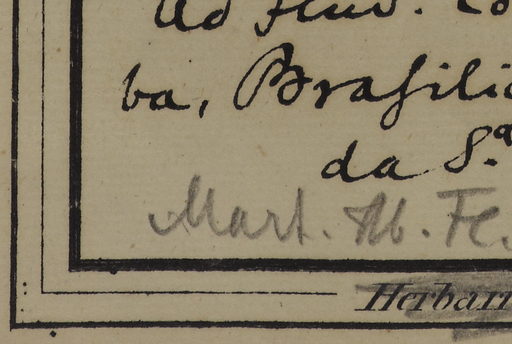 ad Fluv. Co
ba, Brasilia
da S.a
Mart. Hb. Fl.
Herbari